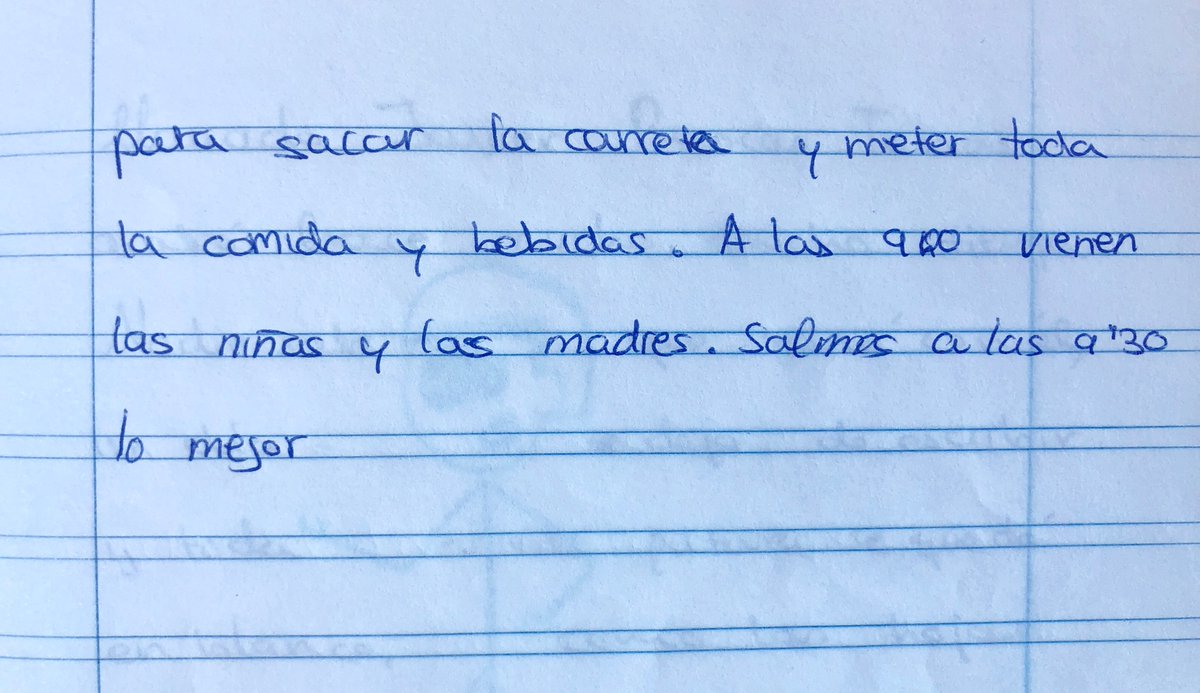 para sacar la carreta y meter toda
la comida y bebidas. A las 9:00 vienen
las niñas y las madres. Salmos a las 9'30
lo mejor